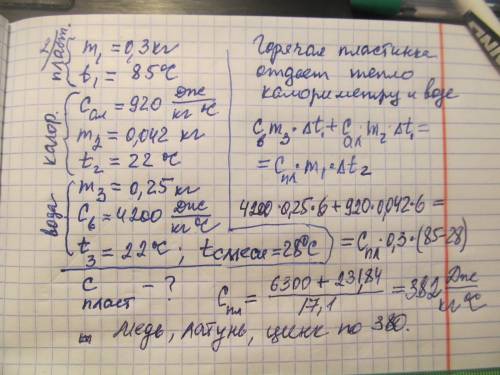 пласт.
m₁ = 0,3 кг
t₁ = 85°C
калор.
Cал = 920 Дж/кг °C
m₂ = 0,042 кг
t₂ = 22 °C
вода
m₃ = 0,25 кг
Cв = 4200 Дж/кг°C
t₃ = 22°C ; tсмеси = 28°C
C пласт – ?
Горячая пластинка
отдает тепло
калориметру и воде
Cв m₃ · Δt₁ + Cал · m₂ · Δt₁ =
= Cпл · m₁ · Δt₂
4200 · 0,25 · 6 + 920 · 0,042 · 6 =
= Cпл · 0,3 · (85-28)
Cпл = (6300 + 231,84)/17,1 = 382 Дж/кг °C
Медь, латунь, цинк по 380.